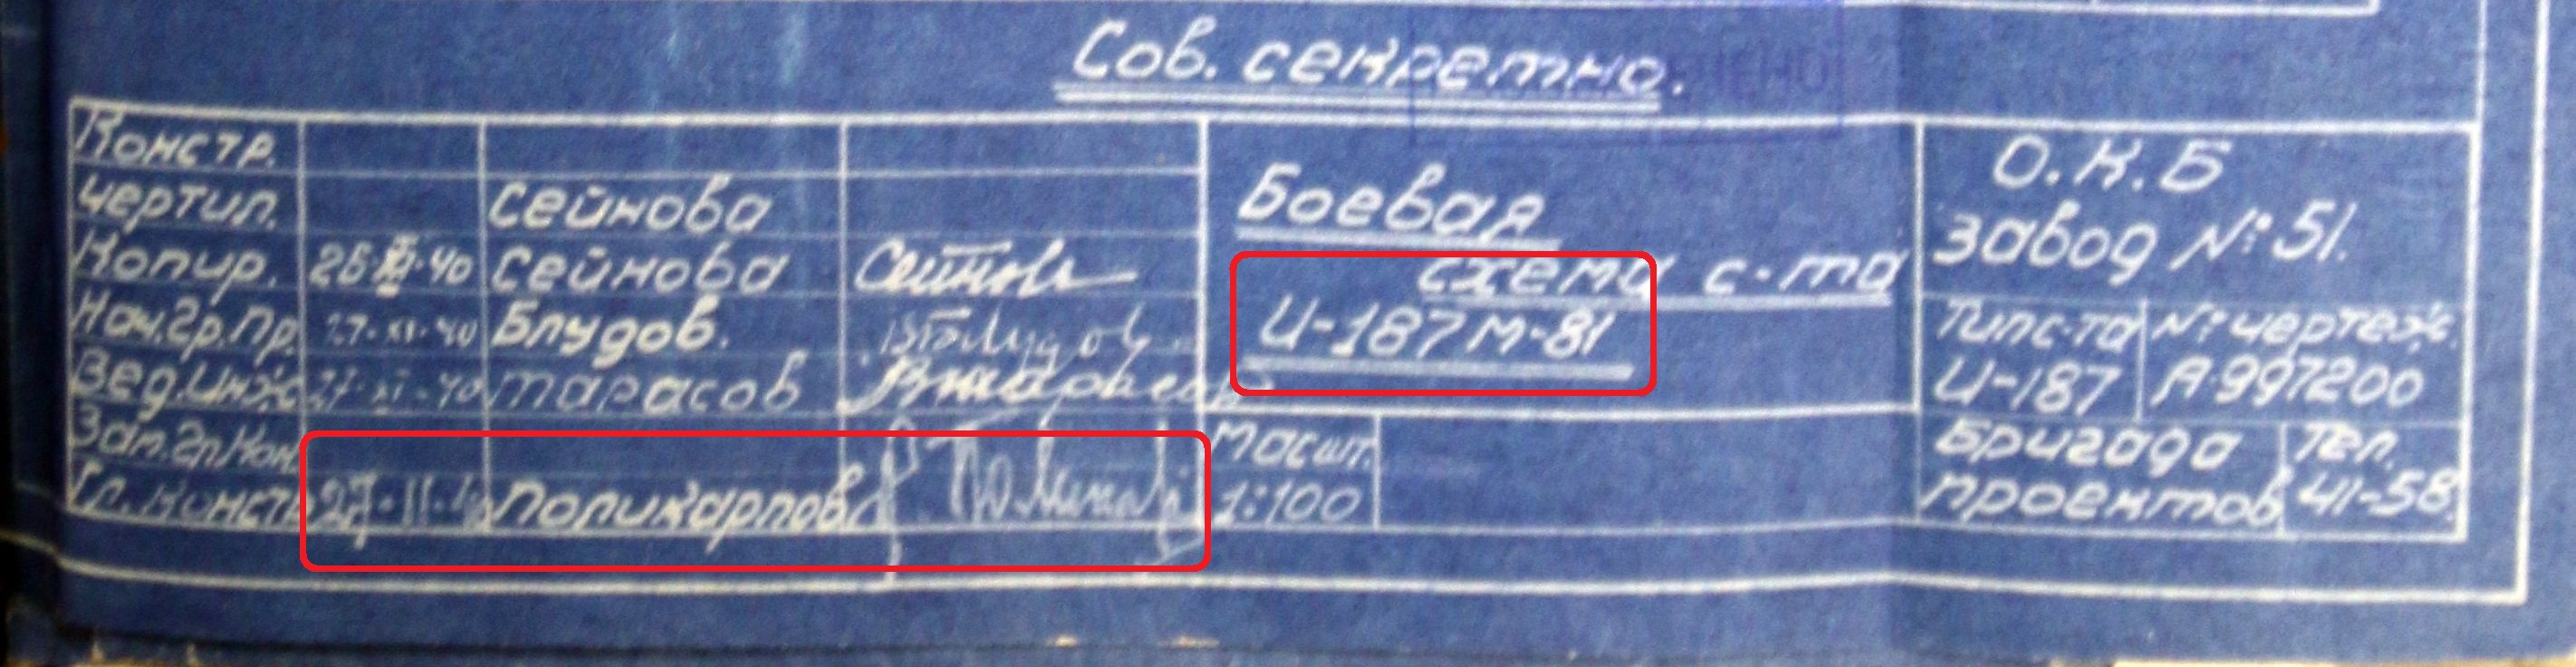 Сов. секретно.
Констр.
Чертил. Сейнова
Копир. 26·XI·40 Сейнова
Нач.гр.пр. 27·XI·40 Блудов.
Вед.инж 27·XI·40 Тарасов
Зап.гр.Кон.
Гл.Констр 27·11·40 Поликарпов
Боевая
схема с-та
И-187 М-81
Масшт.
1:100
О.К.Б
Завод №51.
Тип с-та
И-187
№ чертеж.
А·997200
Бригада
проектов
Тел.
41-58